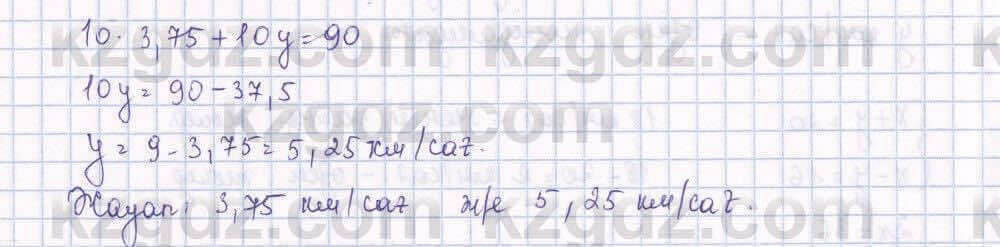 10 · 3,75 + 10y = 90
10y = 90 - 37,5
y = 9 - 3,75 = 5,25 км/сағ.
Жауап: 3,75 км/сағ ж/е 5,25 км/сағ.
kzgdz.com kzgdz.com
kzgdz.com kzgdz.com